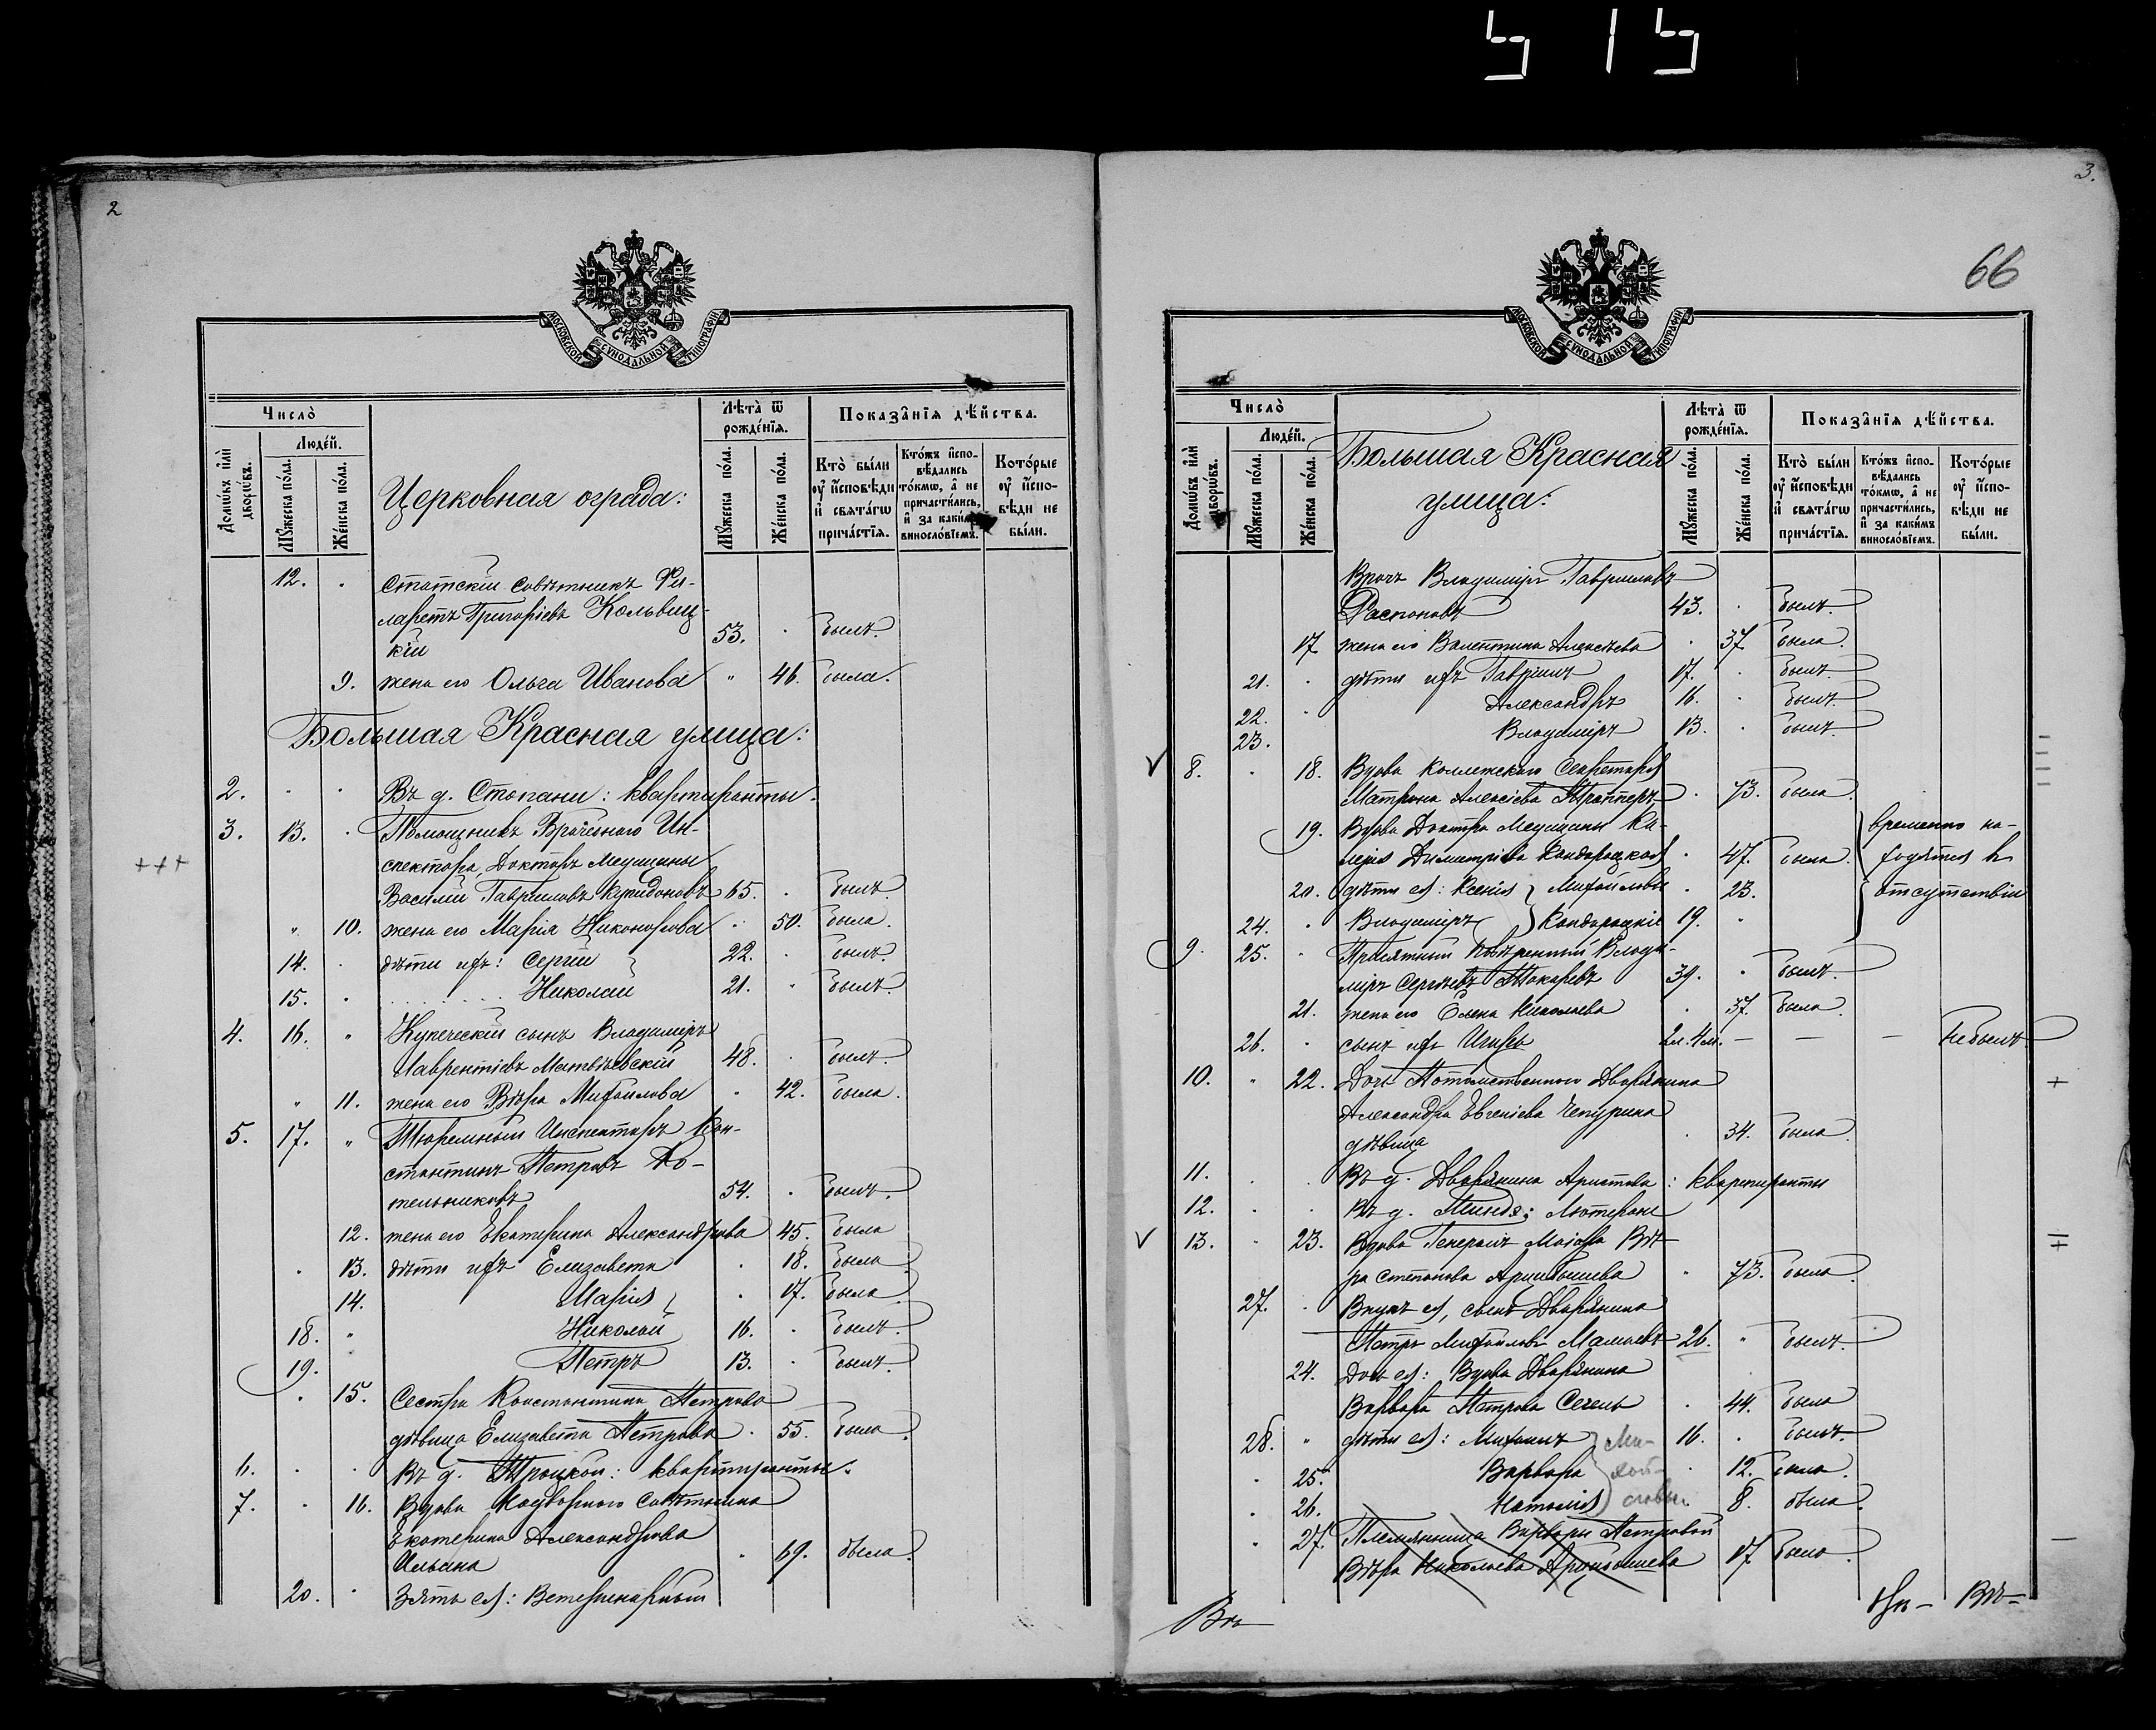 515
2
МОСКОВСКОЙ СУНОДАЛЬНОЙ ТИПОГРАФІИ
Число̀
Людéй.
Домѡ́въ и҆лѝ дворѡ́въ.
Мꙋ́жеска по́ла.
Же́нска по́ла.
Церковная ограда:
Лѣ́та ѿ рожде́нїѧ.
Мꙋ́жеска по́ла.
Же́нска по́ла.
Показа̑нїѧ дѣ́йства.
Кто̀ бы́ли ᲂу҆ и҆сповѣ́ди и҆ свѧта́гѡ прича́стїѧ.
Кто́жъ и҆спо-вѣ́дались то́кмѡ, а҆ не причасти́лись, и҆ за каки́мъ винослові́емъ.
Кото́рые ᲂу҆ и҆спо-вѣ́ди не бы́ли.
12. Статскій совѣтникъ Фи-
ларетъ Григорьевъ Кольвиц-
кій 53. былъ.
9. жена его Ольга Иванова " 46. была.
Большая Красная улица:
2. Въ д. Стопани: квартиранты.
3. 13. Помощникъ Врачебнаго Ин-
спектора, Докторъ Медицины
+++
Василій Гавриловъ Купидоновъ 65. былъ.
" 10. жена его Марія Никонорова 50. была.
14. дѣти ихъ: Сергій 22. былъ.
15. Николай 21. былъ.
4. 16. " Купеческій сынъ Владиміръ
Лаврентіевъ Матвѣевскій 48. былъ.
" 11. жена его Вѣра Михайлова 42. была.
5. 17. " Тюремный Инспекторъ Кон-
стантинъ Петровъ Ко-
тельниковъ 54. былъ.
12. жена его Екатерина Александрова 45. была
13. дѣти ихъ Елизавета 18. была.
14. Марія 17. была.
18. " Николай 16. былъ.
19. Петръ 13. былъ.
15. Сестра Константина Петрова
дѣвица Елизавета Петрова 55. была.
6. Въ д. Троцкой: квартиранты.
7. 16. Вдова Надворнаго Совѣтника
Екатерина Александрова
Ильина 69. была.
20. Зять ея: Ветеринарный
3.
66
МОСКОВСКОЙ СУНОДАЛЬНОЙ ТИПОГРАФІИ
Число̀
Людéй.
Домѡ́въ и҆лѝ дворѡ́въ.
Мꙋ́жеска по́ла.
Же́нска по́ла.
Большая Красная
улица:
Лѣ́та ѿ рожде́нїѧ.
Мꙋ́жеска по́ла.
Же́нска по́ла.
Показа̑нїѧ дѣ́йства.
Кто̀ бы́ли ᲂу҆ и҆сповѣ́ди и҆ свѧта́гѡ прича́стїѧ.
Кто́жъ и҆спо-вѣ́дались то́кмѡ, а҆ не причасти́лись, и҆ за каки́мъ винослові́емъ.
Кото́рые ᲂу҆ и҆спо-вѣ́ди не бы́ли.
Врачъ Владиміръ Гавриловъ
Распоповъ 43. былъ.
17 жена его Валентина Алексѣева 37 была.
21. дѣти ихъ Гавріилъ 17. былъ.
22. Александръ 16. былъ.
23. Владиміръ 13. былъ.
8. 18. Вдова Коллежскаго Секретаря
Матрона Алексіева 73. была.
19. Вдова Доктора Медицины
Димитріева 47. была. временно на-
20. дѣти ея: Ксенія Михайловы 23. ходятся въ
24. Владиміръ 19. отсутствіи
9. 25. " Присяжный Повѣренный Влади-
міръ Сергѣевъ Токаревъ 39. былъ.
21. жена его Елена Николаева 37. была.
26. сынъ ихъ Игорь 2л. 4м. — — — Небылъ
10. " 22. Дочь Потомственнаго Дворянина
Александра Евгеніева Чепурина
дѣвица 34. была.
11. Въ д. Дворянина Аристова: квартиранты
12. Въ д. Лютеране
13. 23. Вдова Генералъ Маіора Вѣ-
ра Степанова Арцыбышева 73. была.
27. Внукъ ея, сынъ Дворянина
Петръ Михайловъ 26. былъ.
24. Дочь ея: Вдова Дворянина
Варвара Петрова 44. была
28. " дѣти ея: Михаилъ Ми- 16. былъ.
25. Варвара хай- 12. была.
26. Наталія ловы. 8. была.
27. Племянница Варвары Петровой
Вѣра Николаева Арцыбышева 17 была.